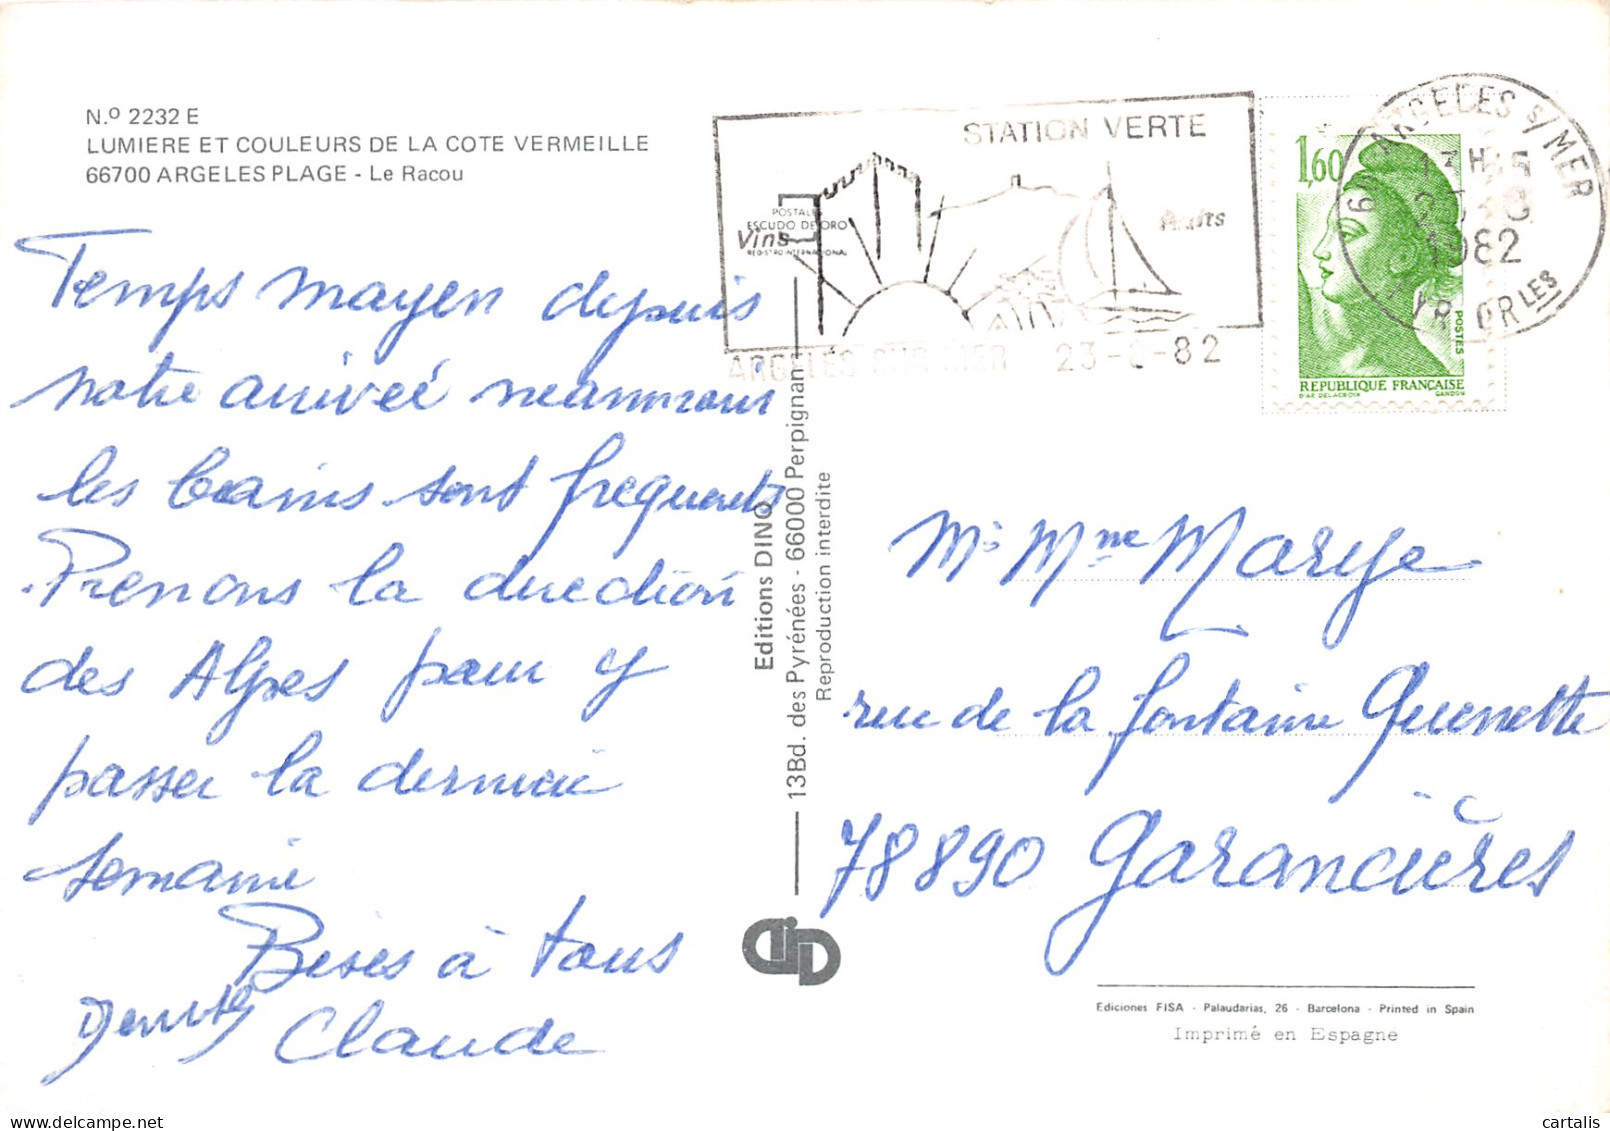 N.º 2232 E
LUMIERE ET COULEURS DE LA COTE VERMEILLE
66700 ARGELES PLAGE - Le Racou
Temps moyen depuis
notre arrivéé neanmoins
les bains sont frequents
Prenons la direction
des Alpes pour y
passer la derniere
semaine
Bises à tous
Claude
STATION VERTE
POSTALES
ESCUDO DE ORO
REGISTRO INTERNACIONAL
Vins
Fruits
ARGELES SUR MER 23-8-82
ARGELES S/MER
1982
PYR. ORLES
1,60
POSTES
REPUBLIQUE FRANÇAISE
D'AP. DELACROIX GANDON
Editions DINO
13Bd. des Pyrénées - 66000 Perpignan
Reproduction interdite
Mr Mme Marye
rue de la fontaine Quenette
78890 Garancières
Ediciones FISA - Palaudarias, 26 - Barcelona - Printed in Spain
Imprimé en Espagne
cartalis